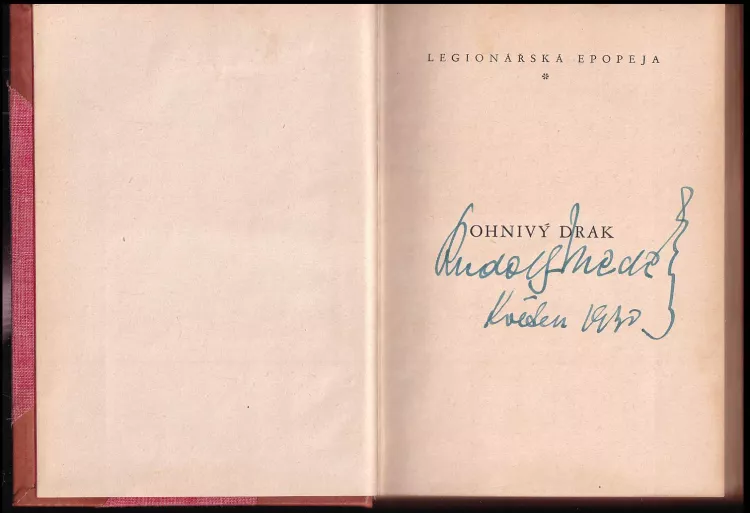 LEGIONÁŘSKÁ EPOPEJA
*
OHNIVÝ DRAK
Rudolf Medek
Květen 1930